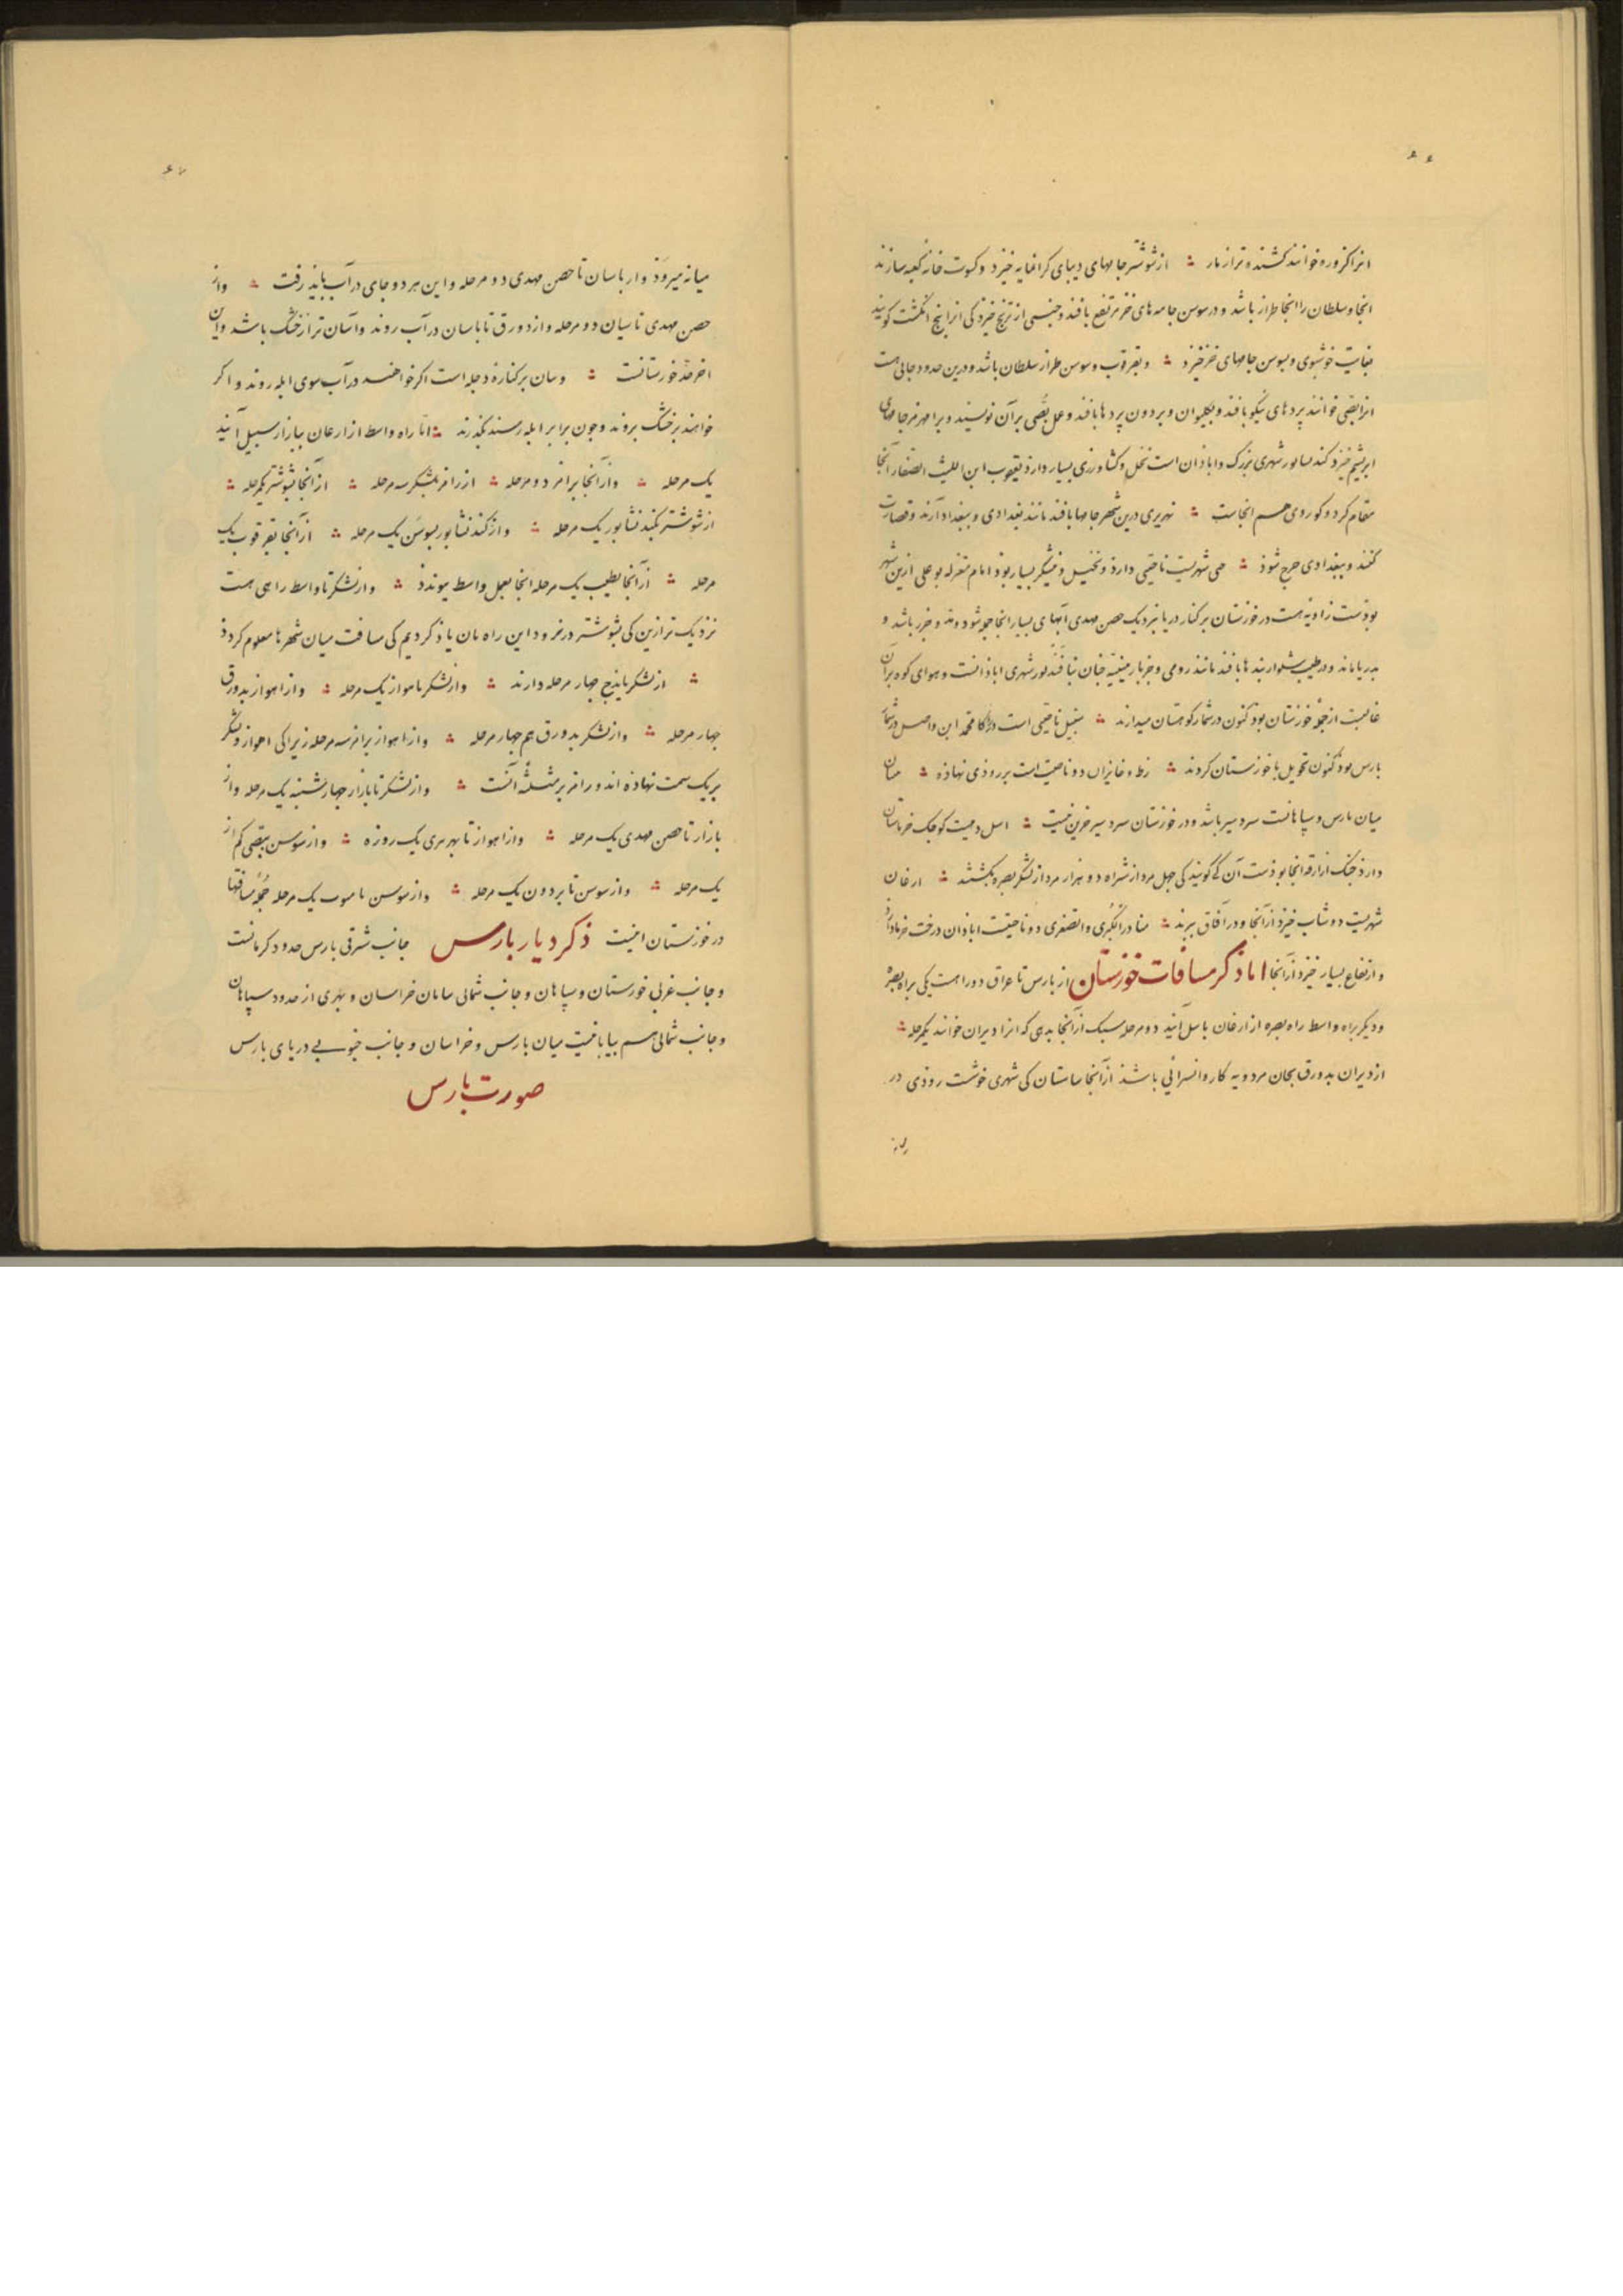 ۶۶
انرا کزوره خوانند کشنده‌تر از مار ؞ از شوشتر جامهای دیبای کرانمایه خیزد و کسوت خانه کعبه سازند
انجا و سلطان را انجا طراز باشد و در سوسن جامه‌های خز مرتفع بافند و جنسی از ترنج خیزد کی انرا پنج انکشت کویند
بغایت خوشبوی و بسوس جامهای خز خیزد ؞ و بقرقوب و سوسن طراز سلطان باشد و درین حدود جائی هست
انرا بصّی خوانند پردهای نیکو بافند و بکلیوان و بردون پردها بافند و عمل بصّی بر آن نویسند و برامهرمز جامهای
ابریشم خیزد کندیسابور شهری بزرک و اباذان است نخل و کشاورزی بسیار دارذ یعقوب ابن اللیث الصفار آنجا
مقام کرد و کور وی هم انجاست ؞ نهرتیری درین شهر جامها بافند مانند بغدادی و ببغداد آرند و قصارت
کنند و ببغدادی خرج شوذ ؞ جی شهریست ناحیتی دارذ و نخیل و نیشکر بسیار بوذ امام معتزله بو علی ازین شهر
بوذست زاویه هست در خوزستان بر کنار دریا بنزدیک حصن مهدی آبهای بسیار انجا جمع شود و مد و جزر باشد و
بدریا ماند و در طیب شلواربندها بافند مانند رومی و جز بارمینیّه چنان نبافند لور شهری اباذانست و هوای کوه بر آن
غالبست از جملهٔ خوزستان بوذ کنون در شمار کوهستان میدارند ؞ سنبیل ناحیتی است درایام محمد ابن واصل در شمار
بارس بود کنون تحویل با خوزستان کردند ؞ زط و خابران دو ناحیت است بر روذی نهاذه ؞ منان
میان بارس و سباهانست سردسیر باشد و در خوزستان سردسیر جز این نیست ؞ اسل دهیست کوچک خرماستان
دارذ جنک ازارقه انجا بوذست آن کی کویند کی چهل مرد از شراه دو هزار مرد از لشکر بصره بکشتند ؞ ارغان
شهریست دوشاب خیزد از آنجا و در آفاق ببرند ؞ مناذر الکُبری و الصغری دو ناحیتست اباذان درخت خرما دارذ
و ارتفاع بسیار خیزد از آنجا اما ذکر مسافات خوزستان از بارس تا عراق دو راهست یکی براه بصره
و دیکر براه واسط راه بصره از ارغان باسل آیند دو مرحله سبک از آنجا بدیهی که انرا دیران خوانند یکمرحله ؞
از دیران بدورق بخان مردویه کاروانسرائی باشذ از آنجا ساستان کی شهری خوشست روذی در
میانه
۶۷
میانه میروَذ و از باسان تا حصن مهدی دو مرحله و این هر دو جای در آب باید رفت ؞ و از
حصن مهدی تا بیان دو مرحله و از دورق تا باسان در آب روند و آسان‌تر از خشک باشد و آن
اخر حدّ خوزستانست ؞ و بیان بر کناره دجله است اکر خواهند در آب سوی ابله روند و اکر
خواهند بر خشک بروند و چون برابر ابله رسند بکذرند ؞ امّا راه واسط از ارغان ببازار سبیل آیند
یک مرحله ؞ و از آنجا برامز دو مرحله ؞ از رامز بلشکر سه مرحله ؞ از آنجا بشوشتر یکمرحله ؞
از شوشتر بکندنشابور یک مرحله ؞ و از کندنشابور بسوسن یک مرحله ؞ از آنجا بقرقوب یک
مرحله ؞ از آنجا بطیب یک مرحله انجا بعمل واسط پیوندذ ؞ و از لشکر تا واسط راهی هست
نزدیک‌تر ازین کی بشوشتر در نرود این راه بدان یاذ کردیم کی مسافت میان شهرها معلوم کردذ
؞ از لشکر بایذج چهار مرحله دارند ؞ و از لشکر باهواز یک مرحله ؞ و از اهواز بدورق
چهار مرحله ؞ و از لشکر بدورق هم چهار مرحله ؞ و از اهواز برامز سه مرحله زیرا کی اهواز و لشکر
بر یک سمت نهاذه اند و رامز بر مثلثهٔ آنست ؞ و از لشکر تا بازار چهارشنبه یک مرحله و از
بازار تا حصن مهدی یک مرحله ؞ و از اهواز تا بهرتیری یک روزه ؞ و از سوسن ببصّی کم از
یک مرحله ؞ و از سوس تا بردون یک مرحله ؞ و از سوسن تا متوث یک مرحله جملهٔ مسافتها
در خوزستان اینست ذکر دیار بارس جانب شرقی بارس حدود کرمانست
و جانب غربی خوزستان و سباهان و جانب شمالی بیابان خراسان و بهری از حدود سباهان
و جانب شمالی هم بیابانیست میان بارس و خراسان و جانب جنوبی دریای بارس
صورت بارس